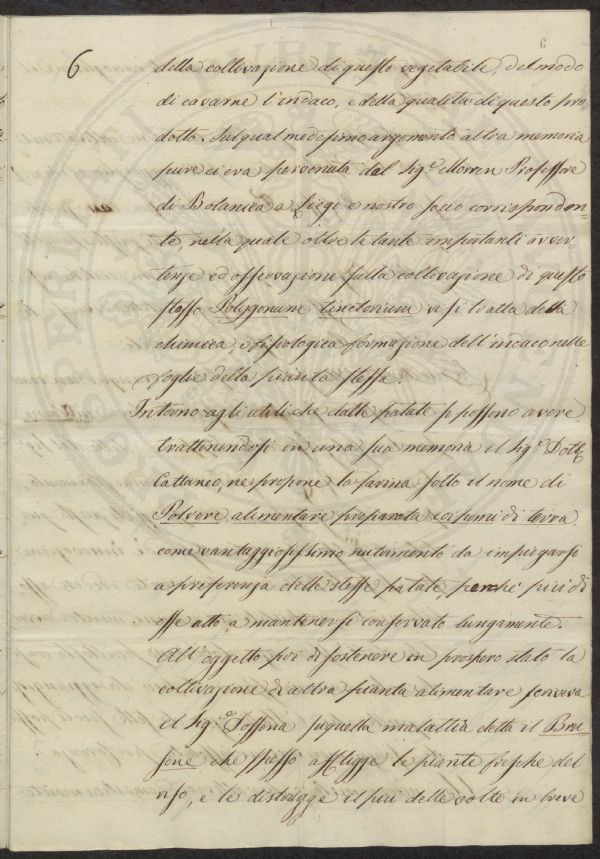 6
6
della coltivazione di questo vegetabile, del modo
di cavarne l'indaco, e della qualità di questo pro-
dotto. Sul qual medesimo argomento altra memoria
pure ci era pervenuta dal Sig.e Morren Professore
di Botanica a Liegi e nostro socio corrisponden-
te, nella quale oltre le tante importanti avver-
tenze ed osservazioni sulla coltivazione di questo
stesso Polygonum tinctorium vi si tratta della
chimica, e fisiologica formazione dell'indaco nelle
foglie della pianta stessa.
Intorno agli utili che dalle patate si possono avere
trattenendosi in una sua memoria il Sig.e Dott.
Cattaneo, ne propone la farina sotto il nome di
Polvere alimentare preparata coi pomi di terra,
come vantaggiosissimo nutrimento da impiegarsi
a preferenza delle stesse patate, perchè più di
esse atto a mantenersi conservato lungamente.
All'oggetto poi di sostenere in prospero stato la
coltivazione di altra pianta alimentare scriveva
il Sig.e su quella malattia detta il Bru-
sone che spesso affligge le piante fresche del
riso, e le distrugge il più delle volte in breve